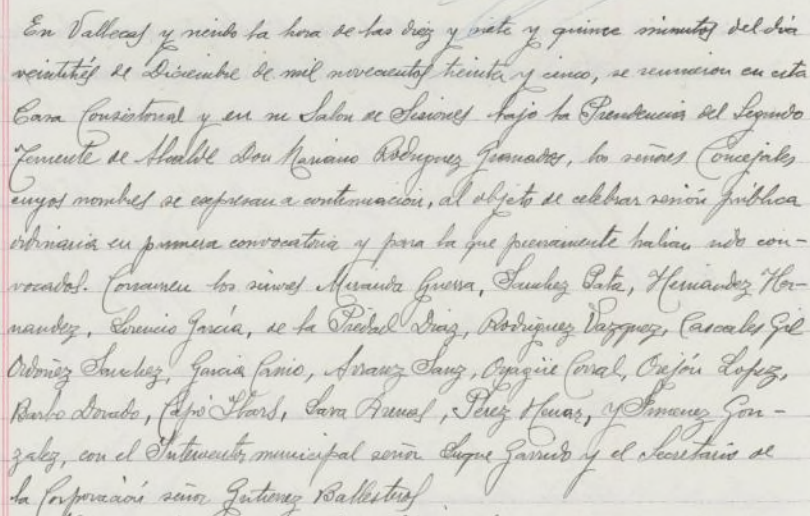 En Vallecas y siendo la hora de las diez y siete y quince minutos del día
veintitrés de Diciembre de mil novecientos treinta y cinco, se reunieron en esta
Casa Consistorial y en su Salon de Sesiones bajo la Presidencia del Segundo
Teniente de Alcalde Don Mariano Rodriguez Granados, los señores Concejales
cuyos nombres se expresan a continuación, al objeto de celebrar sesión pública
ordinaria en primera convocatoria y para la que previamente habian sido con-
vocados. Concurren los señores Miranda Guerra, Sanchez Pata, Hernandez Her-
nandez, Lorencio García, de la Piedad Diaz, Rodriguez Vazquez, Cascales Gil
Ordoñez Sanchez, Garcia Canio, Arranz Sanz, Oyagüe Corral, Orejón Lopez,
Barbo Dorado, Capó Ibars, Lara Arenal, Pérez Henar, y Jimenez Gon-
zalez, con el Interventor municipal señor Luque Garrido y el Secretario de
la Corporación señor Gutierrez Ballesteros